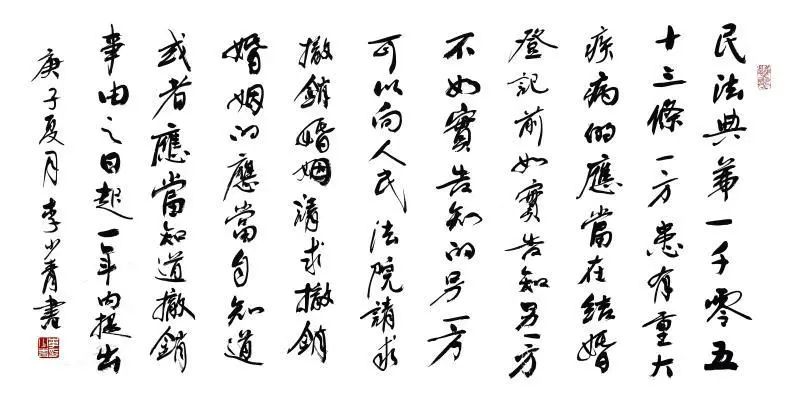 民法典第一千零五
十三條一方患有重大
疾病的應當在結婚
登記前如實告知另一方
不如實告知的另一方
可以向人民法院請求
撤銷婚姻請求撤銷
婚姻的應當自知道
或者應當知道撤銷
事由之日起一年内提出
庚子夏月李少青書